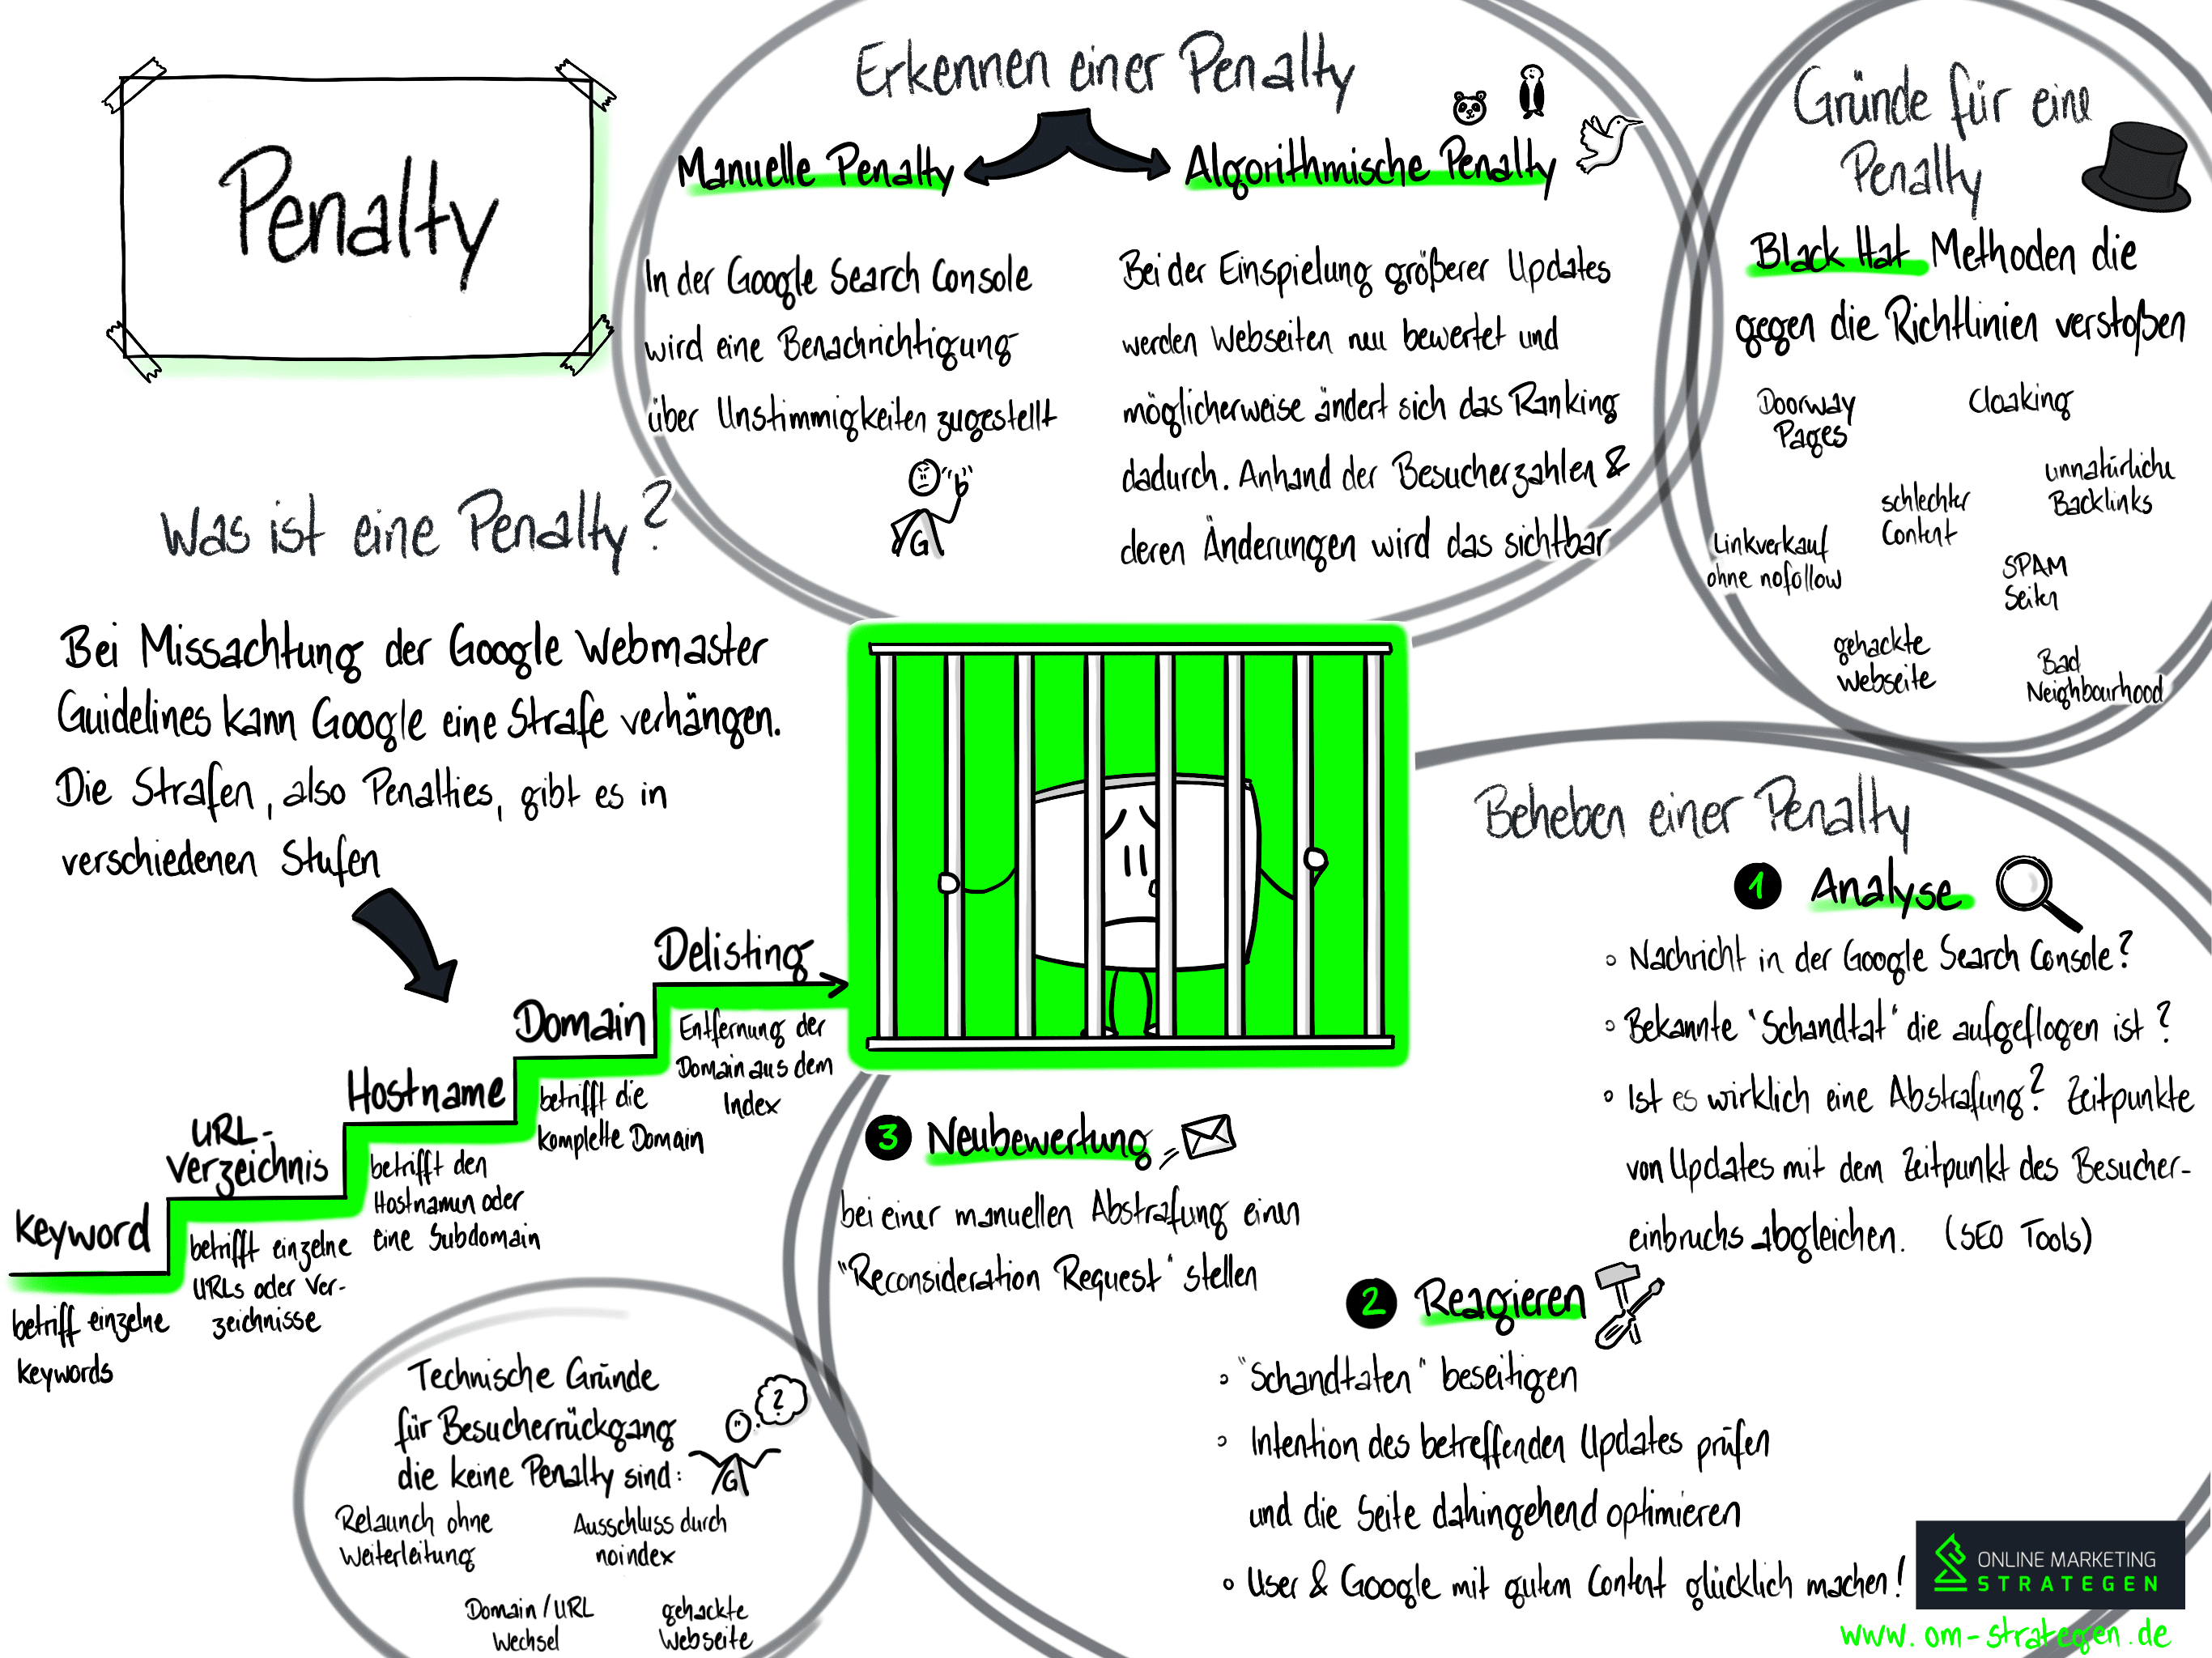 Penalty
Was ist eine Penalty?
Bei Missachtung der Google Webmaster
Guidelines kann Google eine Strafe verhängen.
Die Strafen, also Penalties, gibt es in
verschiedenen Stufen
Keyword
betriff einzelne
Keywords
URL-
Verzeichnis
betrifft einzelne
URLs oder Ver-
zeichnisse
Hostname
betrifft den
Hostnamen oder
eine Subdomain
Domain
betrifft die
komplette Domain
Delisting
Entfernung der
Domain aus dem
Index
Erkennen einer Penalty
Manuelle Penalty
In der Google Search Console
wird eine Benachrichtigung
über Unstimmigkeiten zugestellt
G
Algorithmische Penalty
Bei der Einspielung größerer Updates
werden Webseiten neu bewertet und
möglicherweise ändert sich das Ranking
dadurch. Anhand der Besucherzahlen &
deren Änderungen wird das sichtbar
Gründe für eine
Penalty
Black Hat Methoden die
gegen die Richtlinien verstoßen
Doorway
Pages
Cloaking
unnatürliche
Backlinks
schlechter
Content
Linkverkauf
ohne nofollow
SPAM
Seiten
gehackte
Webseite
Bad
Neighbourhood
Beheben einer Penalty
1 Analyse
◦ Nachricht in der Google Search Console?
◦ Bekannte "Schandtat" die aufgeflogen ist?
◦ Ist es wirklich eine Abstrafung? Zeitpunkte
von Updates mit dem Zeitpunkt des Besucher-
einbruchs abgleichen. (SEO Tools)
2 Reagieren
◦ "Schandtaten" beseitigen
◦ Intention des betreffenden Updates prüfen
und die Seite dahingehend optimieren
◦ User & Google mit gutem Content glücklich machen!
3 Neubewertung
bei einer manuellen Abstrafung einen
"Reconsideration Request" stellen
Technische Gründe
für Besucherrückgang
die keine Penalty sind:
?
G
Relaunch ohne
Weiterleitung
Ausschluss durch
noindex
Domain/URL
Wechsel
gehackte
Webseite
ONLINE MARKETING
STRATEGEN
www.om-strategen.de